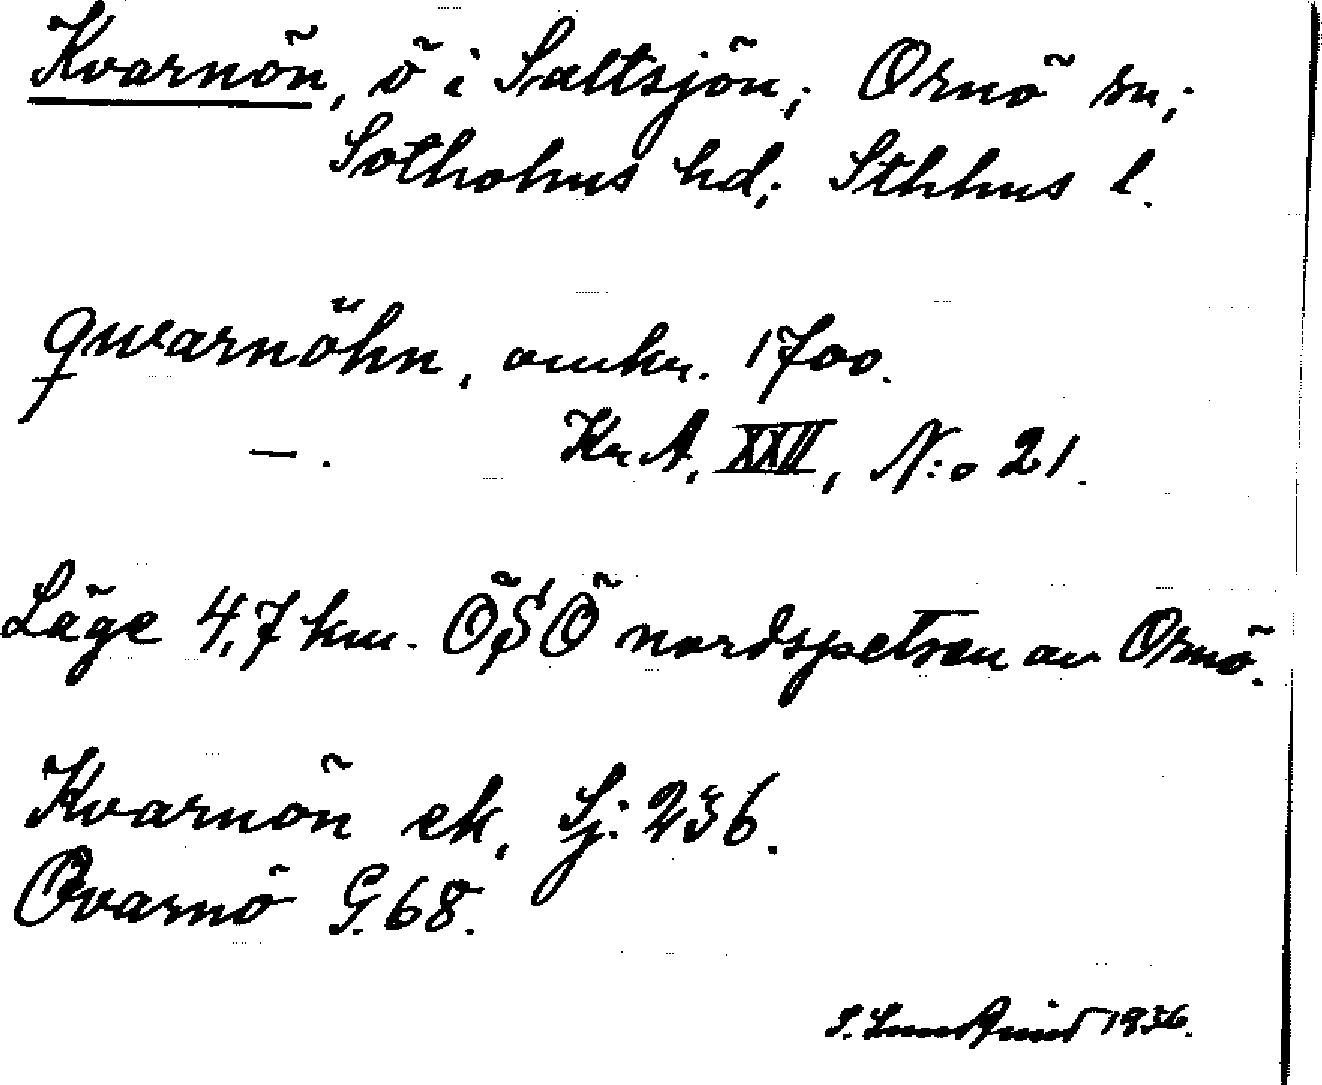 Kvarnön, ö i Saltsjön; Ornö sn;
Sotholms hd; Sthlms l.
qwarnöhn, omkr. 1700.
—. Kr A, XXII, N:o 21.
Läge 4,7 km. ÖSÖ nordspetsen av Ornö.
Kvarnön ek, Sj: 236.
Qvarnö G. 68.
1936.